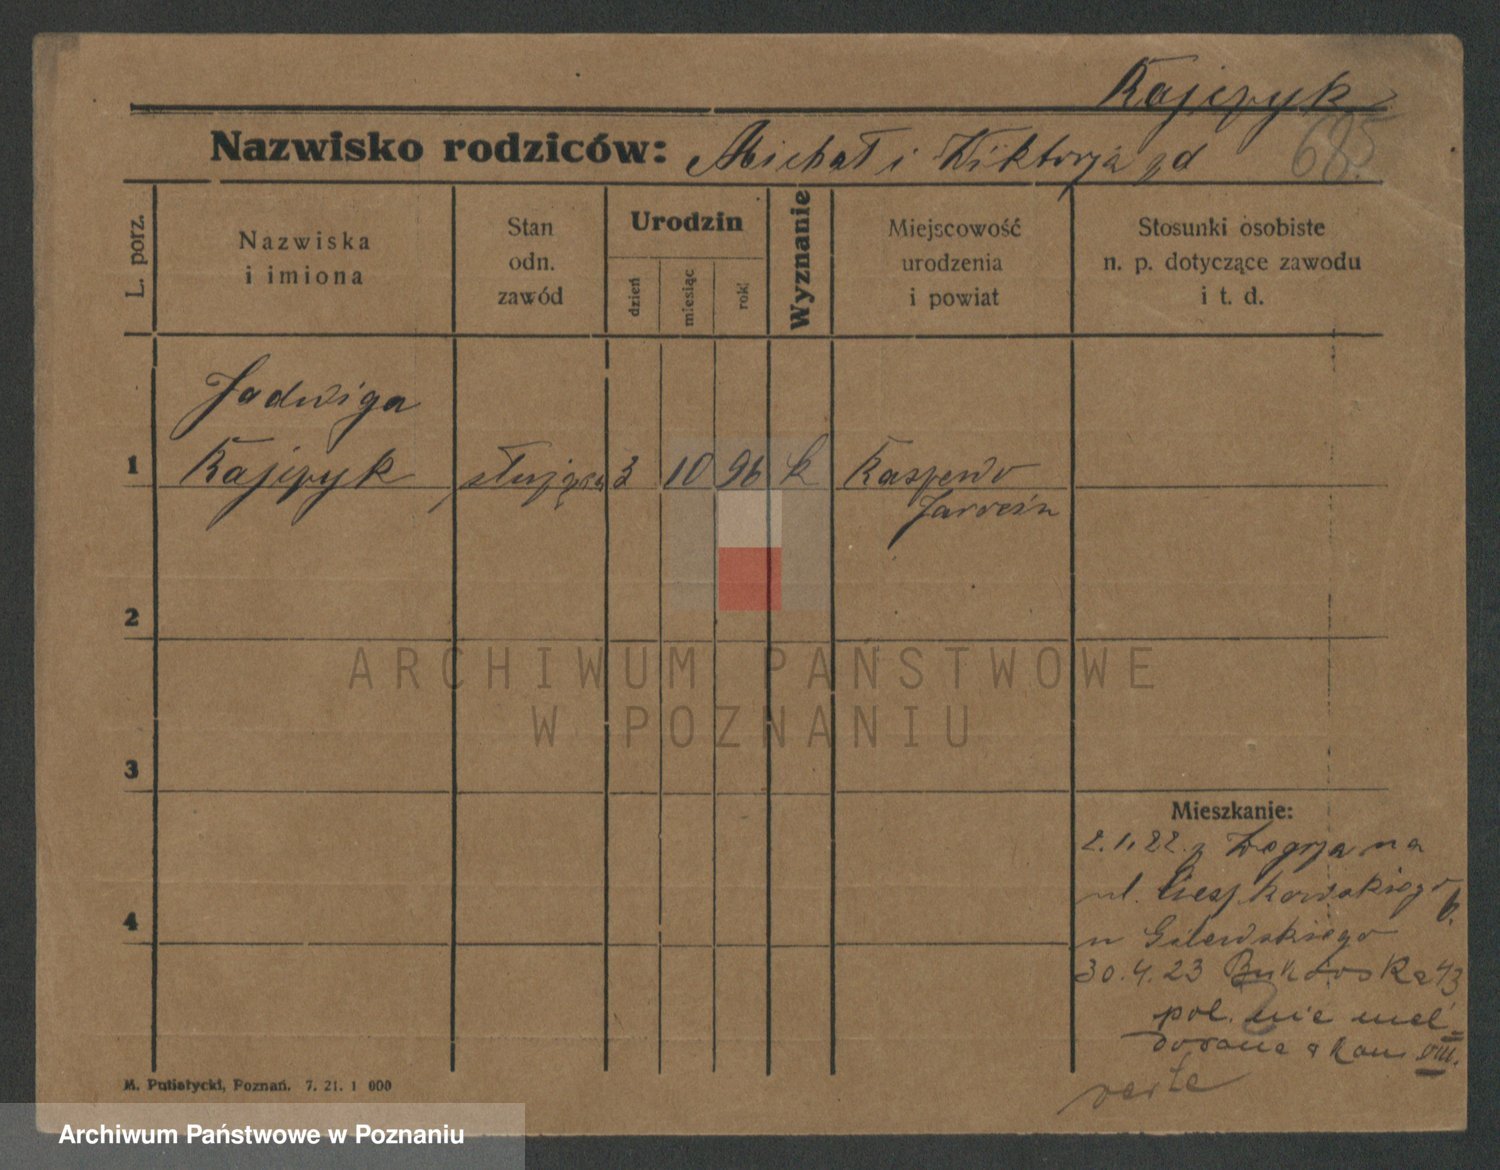 Kajczyk
685.
Nazwisko rodziców: Michał i Wiktorja zd
L. porz.
Nazwiska i imiona
Stan odn. zawód
Urodzin
dzień
miesiąc
rok
Wyznanie
Miejscowość urodzenia i powiat
Stosunki osobiste n. p. dotyczące zawodu i t. d.
Jadwiga
1 Kajczyk służąca 3 10 96 k
Jarocin
2
3
4
Mieszkanie:
2.1.22. z na
ul. Cieszkowskiego 6.
u
30.4.23 Bukowska 43
pol. nie mel-
dowana VIII.
verte
M. Putiatycki, Poznań. 7. 21. 1 000
ARCHIWUM PAŃSTWOWE
W POZNANIU
Archiwum Państwowe w Poznaniu